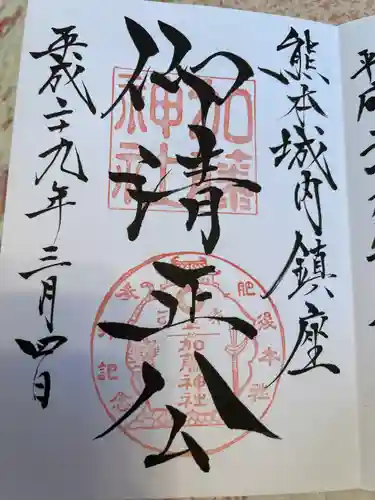 熊本城内鎮座
仰清正公
平成二十九年三月四日
加藤神社
肥後本社
加藤神社
記念